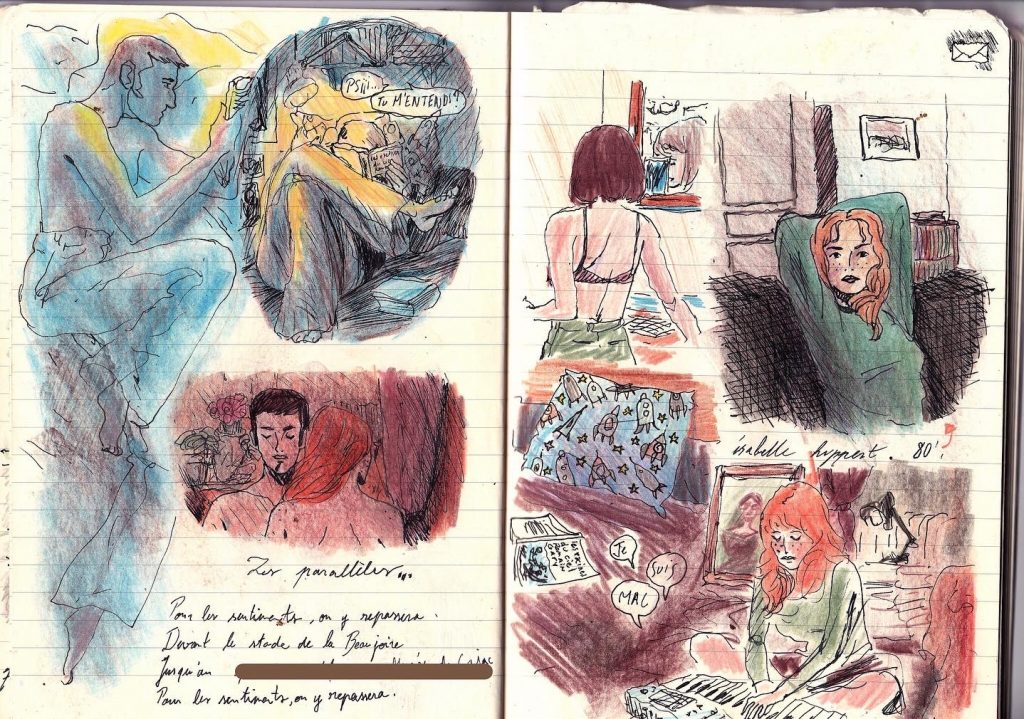 PSiii...
TU M'ENTENDS?
Les parallèles...
Pour les sentiments, on y repassera.
Devant le stade de la Beaujoire
Jusqu'au
Pour les sentiments, on y repassera.
isabelle huppert. 80'
JE
SUIS
MAL